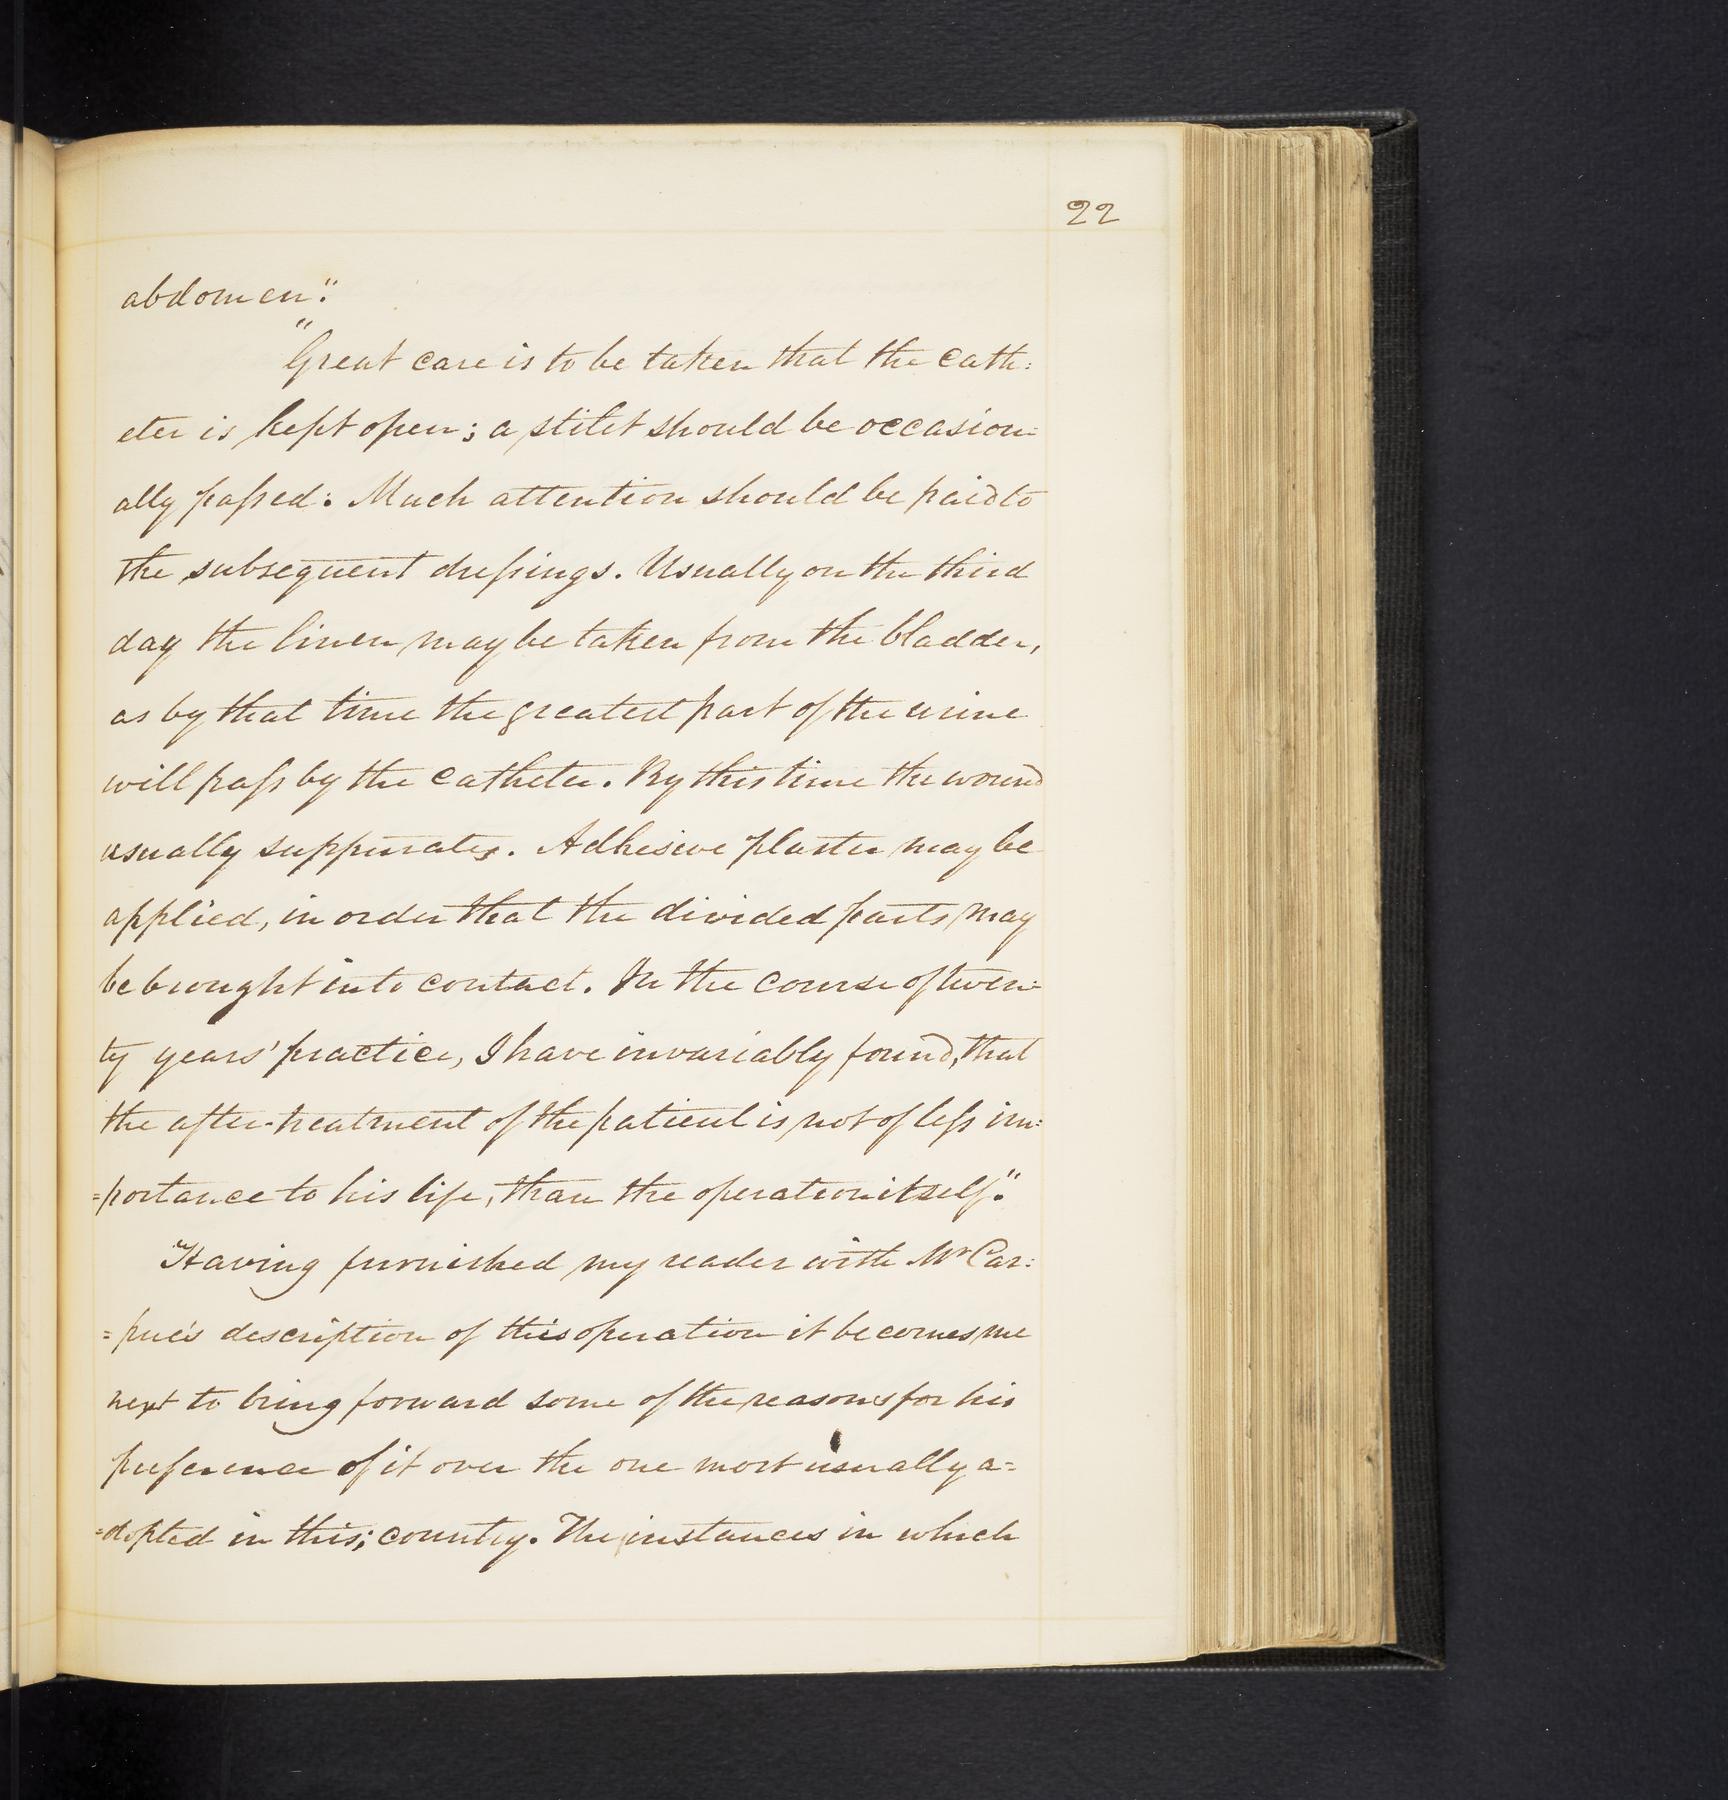 22
abdomen."
"Great care is to be taken that the cath:
eter is kept open; a stilet should be occasion=
ally paſsed: Much attention should be paid to
the subsequent dreſsings. Usually on the third
day the linen may be taken from the bladder,
as by that time the greatest part of the urine
will paſs by the catheter. By this time the wound
usually suppurates. Adhesive plaster may be
applied, in order that the divided parts may
be brought into contact. In the course of twen=
ty years' practice, I have invariably found, that
the after-treatment of the patient is not of leſs im=
=portance to his life, than the operation itself."
"Having furnished my reader with Mr Car:
=pue's description of this operation it becomes me
next to bring forward some of the reasons for his
preference of it over the one most usually a=
=dopted in this; country. The instances in which